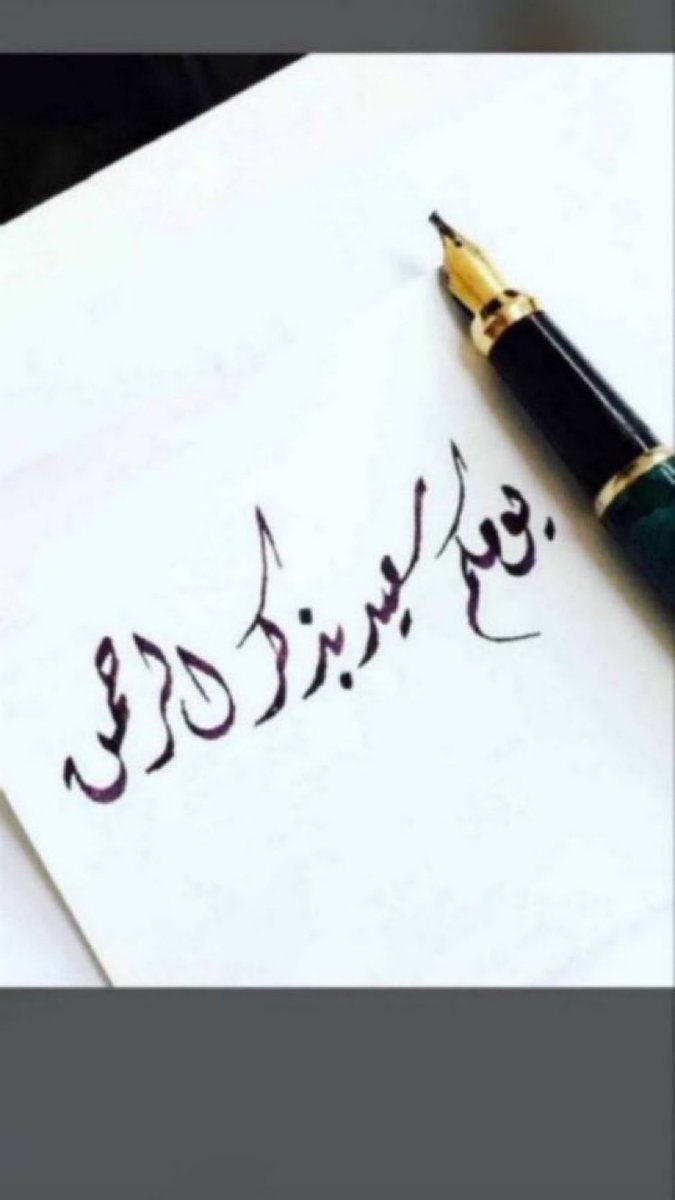 يومكم سعيد بذكر الرحمن